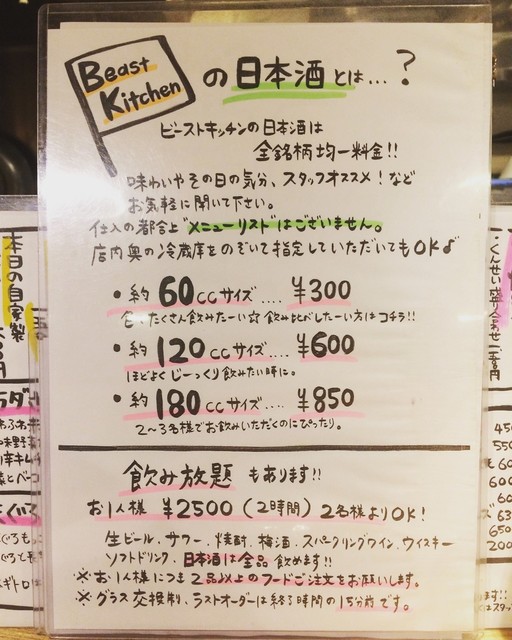 Beast Kitchen の日本酒とは…?
ビーストキッチンの日本酒は
全銘柄均一料金!!
味わいやその日の気分、スタッフオススメ!など
お気軽に聞いて下さい。
仕入の都合上"メニューリスト"はございません。
店内奥の冷蔵庫をのぞいて指定していただいてもOK♪
・約60ccサイズ....¥300
色々たくさん飲みたーい☆飲み比がしたーい方はコチラ!!
・約120ccサイズ....¥600
ほどよくじーっくり飲みたい時に。
・約180ccサイズ....¥850
2〜3名様でお飲みいただくのにぴったり。
飲み放題もあります!!
お1人様 ¥2500(2時間)2名様よりOK!
生ビール、サワー、焼酎、梅酒、スパークリングワイン、ウイスキー
ソフトドリンク、日本酒は全品飲めます!!
※お1人様につき2品以上のフードご注文をお願いします。
※グラス交換制、ラストオーダーは終了時間の15分前です。
本日の自家製
くんせい盛り合わせ